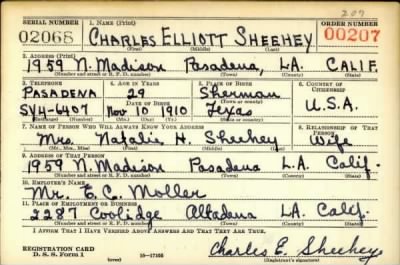 207
SERIAL NUMBER 1. NAME (Print) ORDER NUMBER
02068 CHARLES ELLIOTT SHEEHEY 00207
(First) (Middle) (Last)
2. ADDRESS (Print)
1959 N. Madison Pasadena, L.A. CALIF.
(Number and street or R. F. D. number) (Town) (County) (State)
3. TELEPHONE 4. AGE IN YEARS 5. PLACE OF BIRTH 6. COUNTRY OF CITIZENSHIP
PASADENA 29 Sherman
DATE OF BIRTH
SY4-6407 Nov 10 1910 Texas U.S.A.
(Exchange) (Number) (Mo.) (Day) (Yr.) (State or country)
7. NAME OF PERSON WHO WILL ALWAYS KNOW YOUR ADDRESS 8. RELATIONSHIP OF THAT PERSON
Mrs. Natalie H. Sheehey Wife
(Mr., Mrs., Miss) (First) (Middle) (Last)
9. ADDRESS OF THAT PERSON
1959 N. Madison Pasadena L.A. Calif.
(Number and street or R. F. D. number) (Town) (County) (State)
10. EMPLOYER'S NAME
Mr. E. C. Moller
11. PLACE OF EMPLOYMENT OR BUSINESS
2287 Coolidge Altadena L.A. Calif.
(Number and street or R. F. D. number) (Town) (County) (State)
I AFFIRM THAT I HAVE VERIFIED ABOVE ANSWERS AND THAT THEY ARE TRUE.
REGISTRATION CARD
D. S. S. Form 1 (over) 16-17105 Charles E. Sheehey
(Registrant's signature)